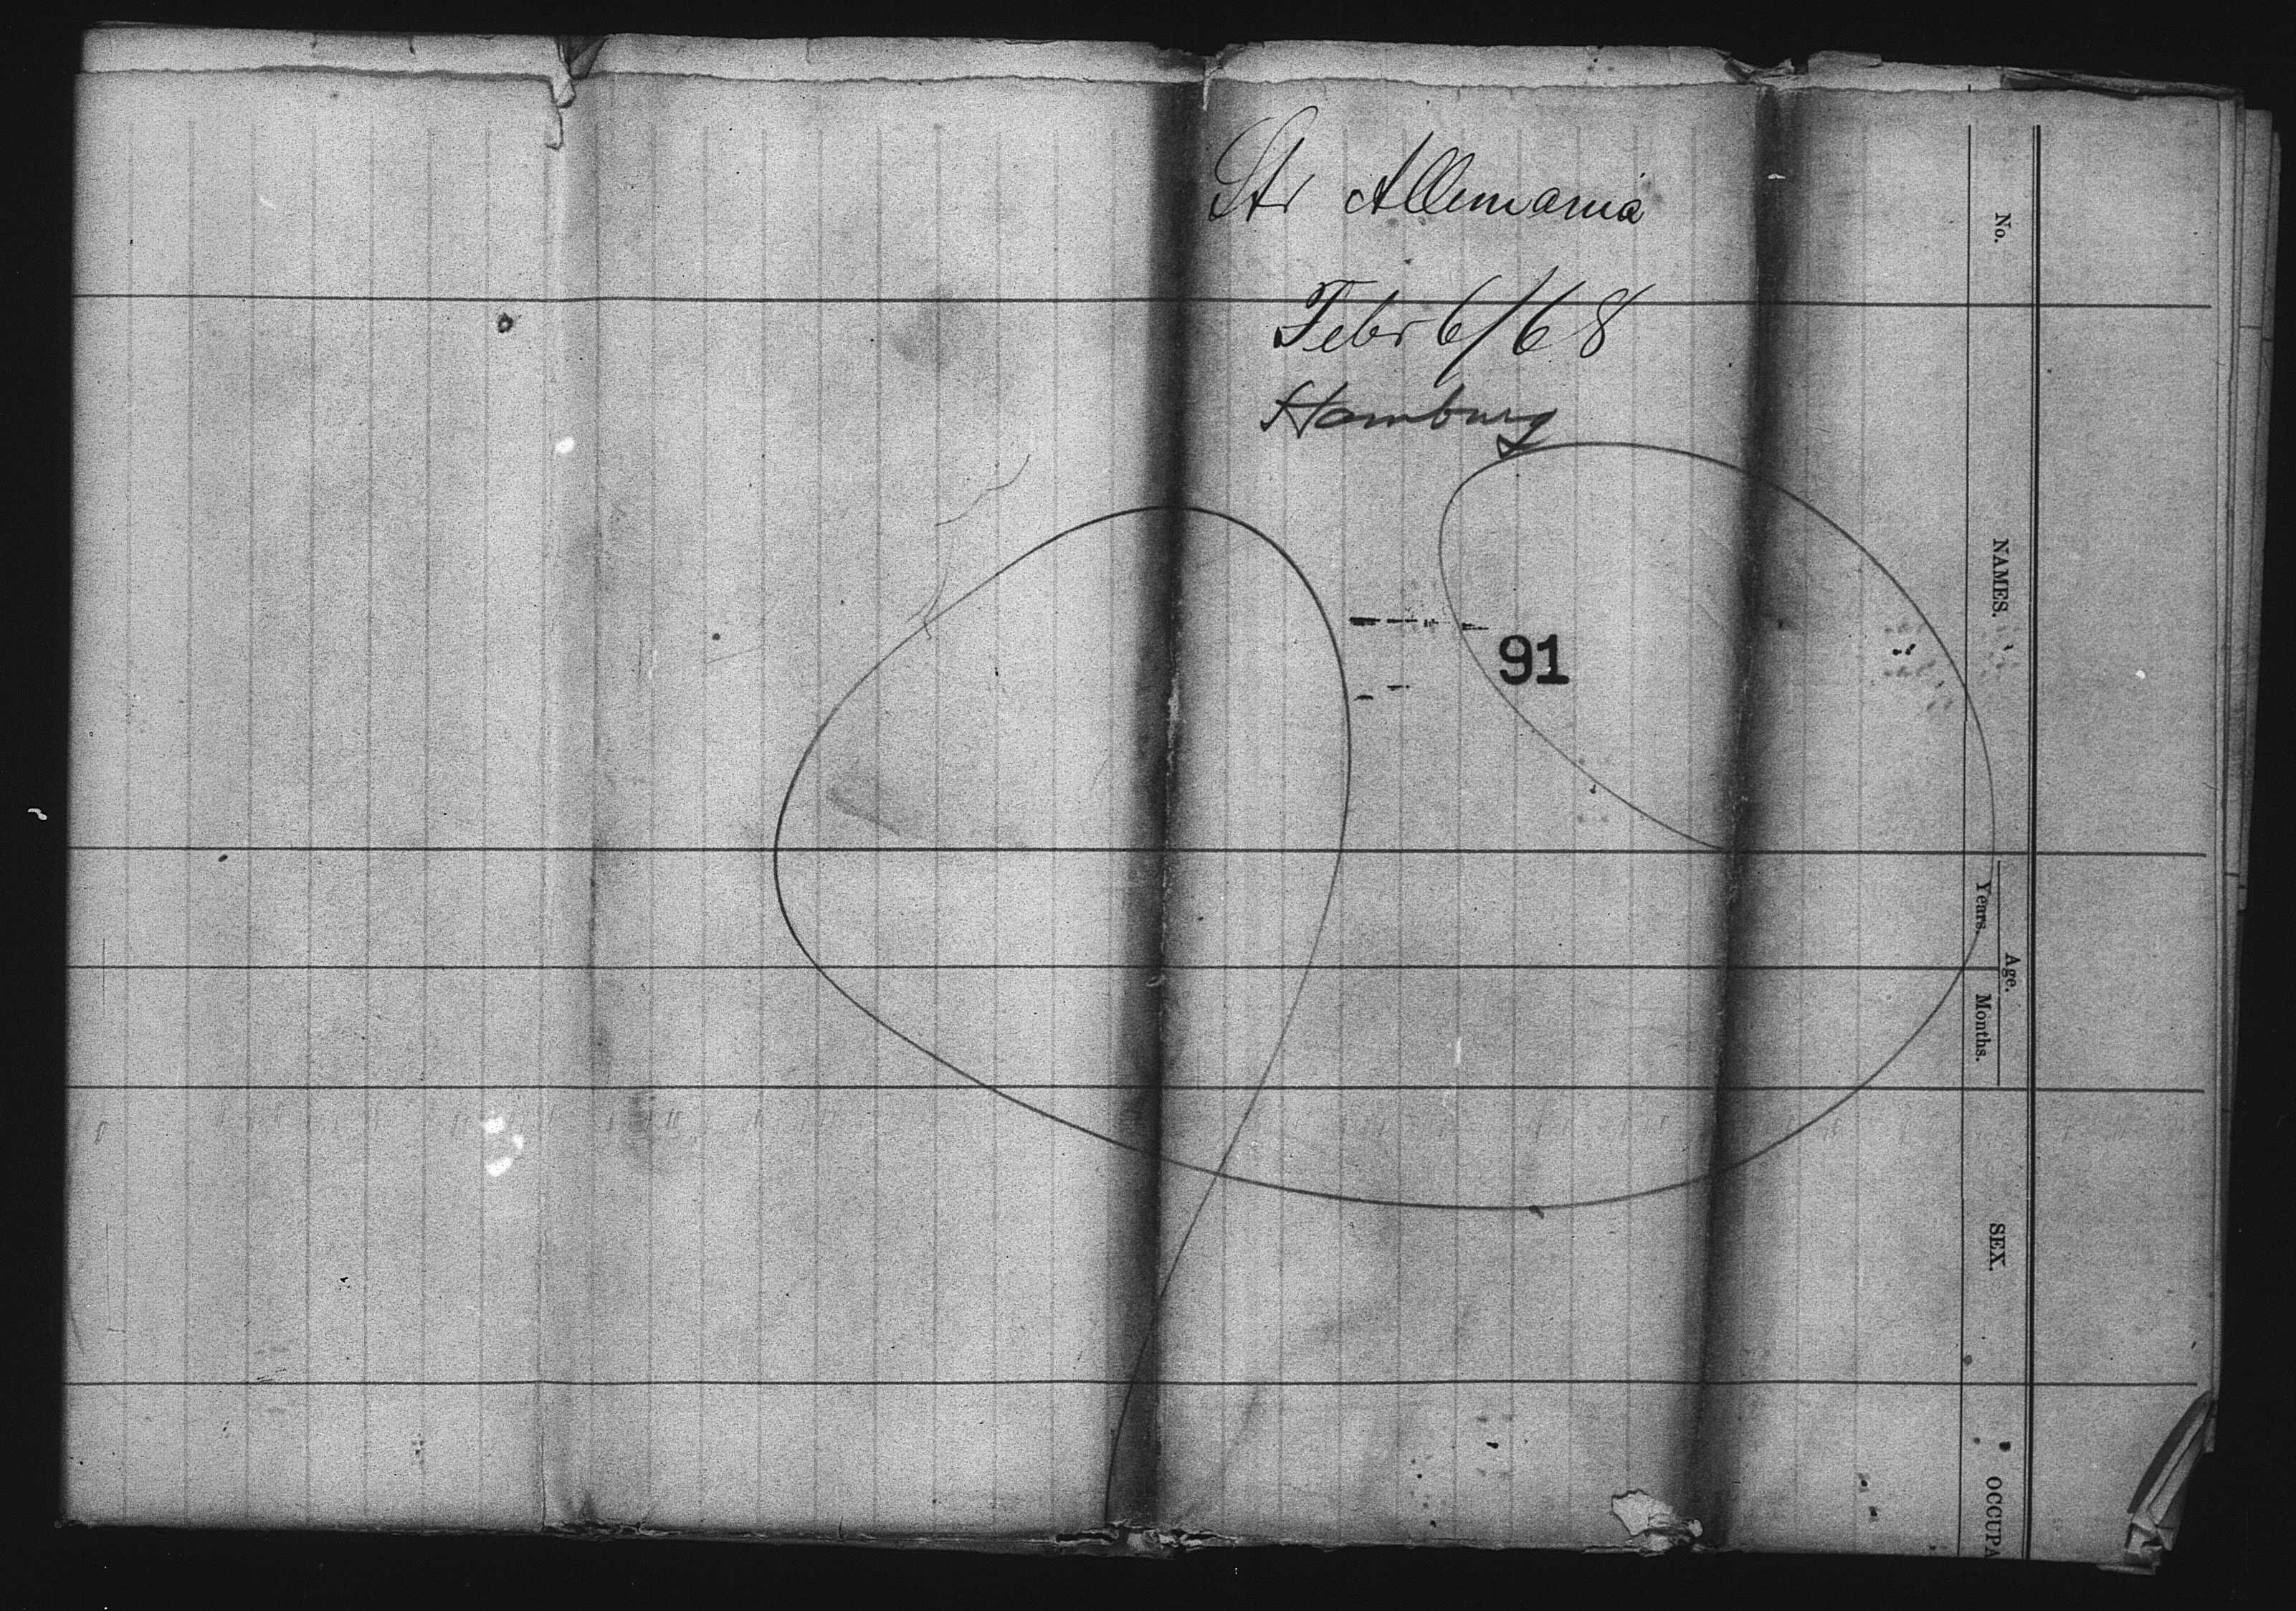 Str Allemania
Febr 6/68
Hamburg
91
No.
NAMES.
Age.
Years.
Months.
SEX.
OCCUPA